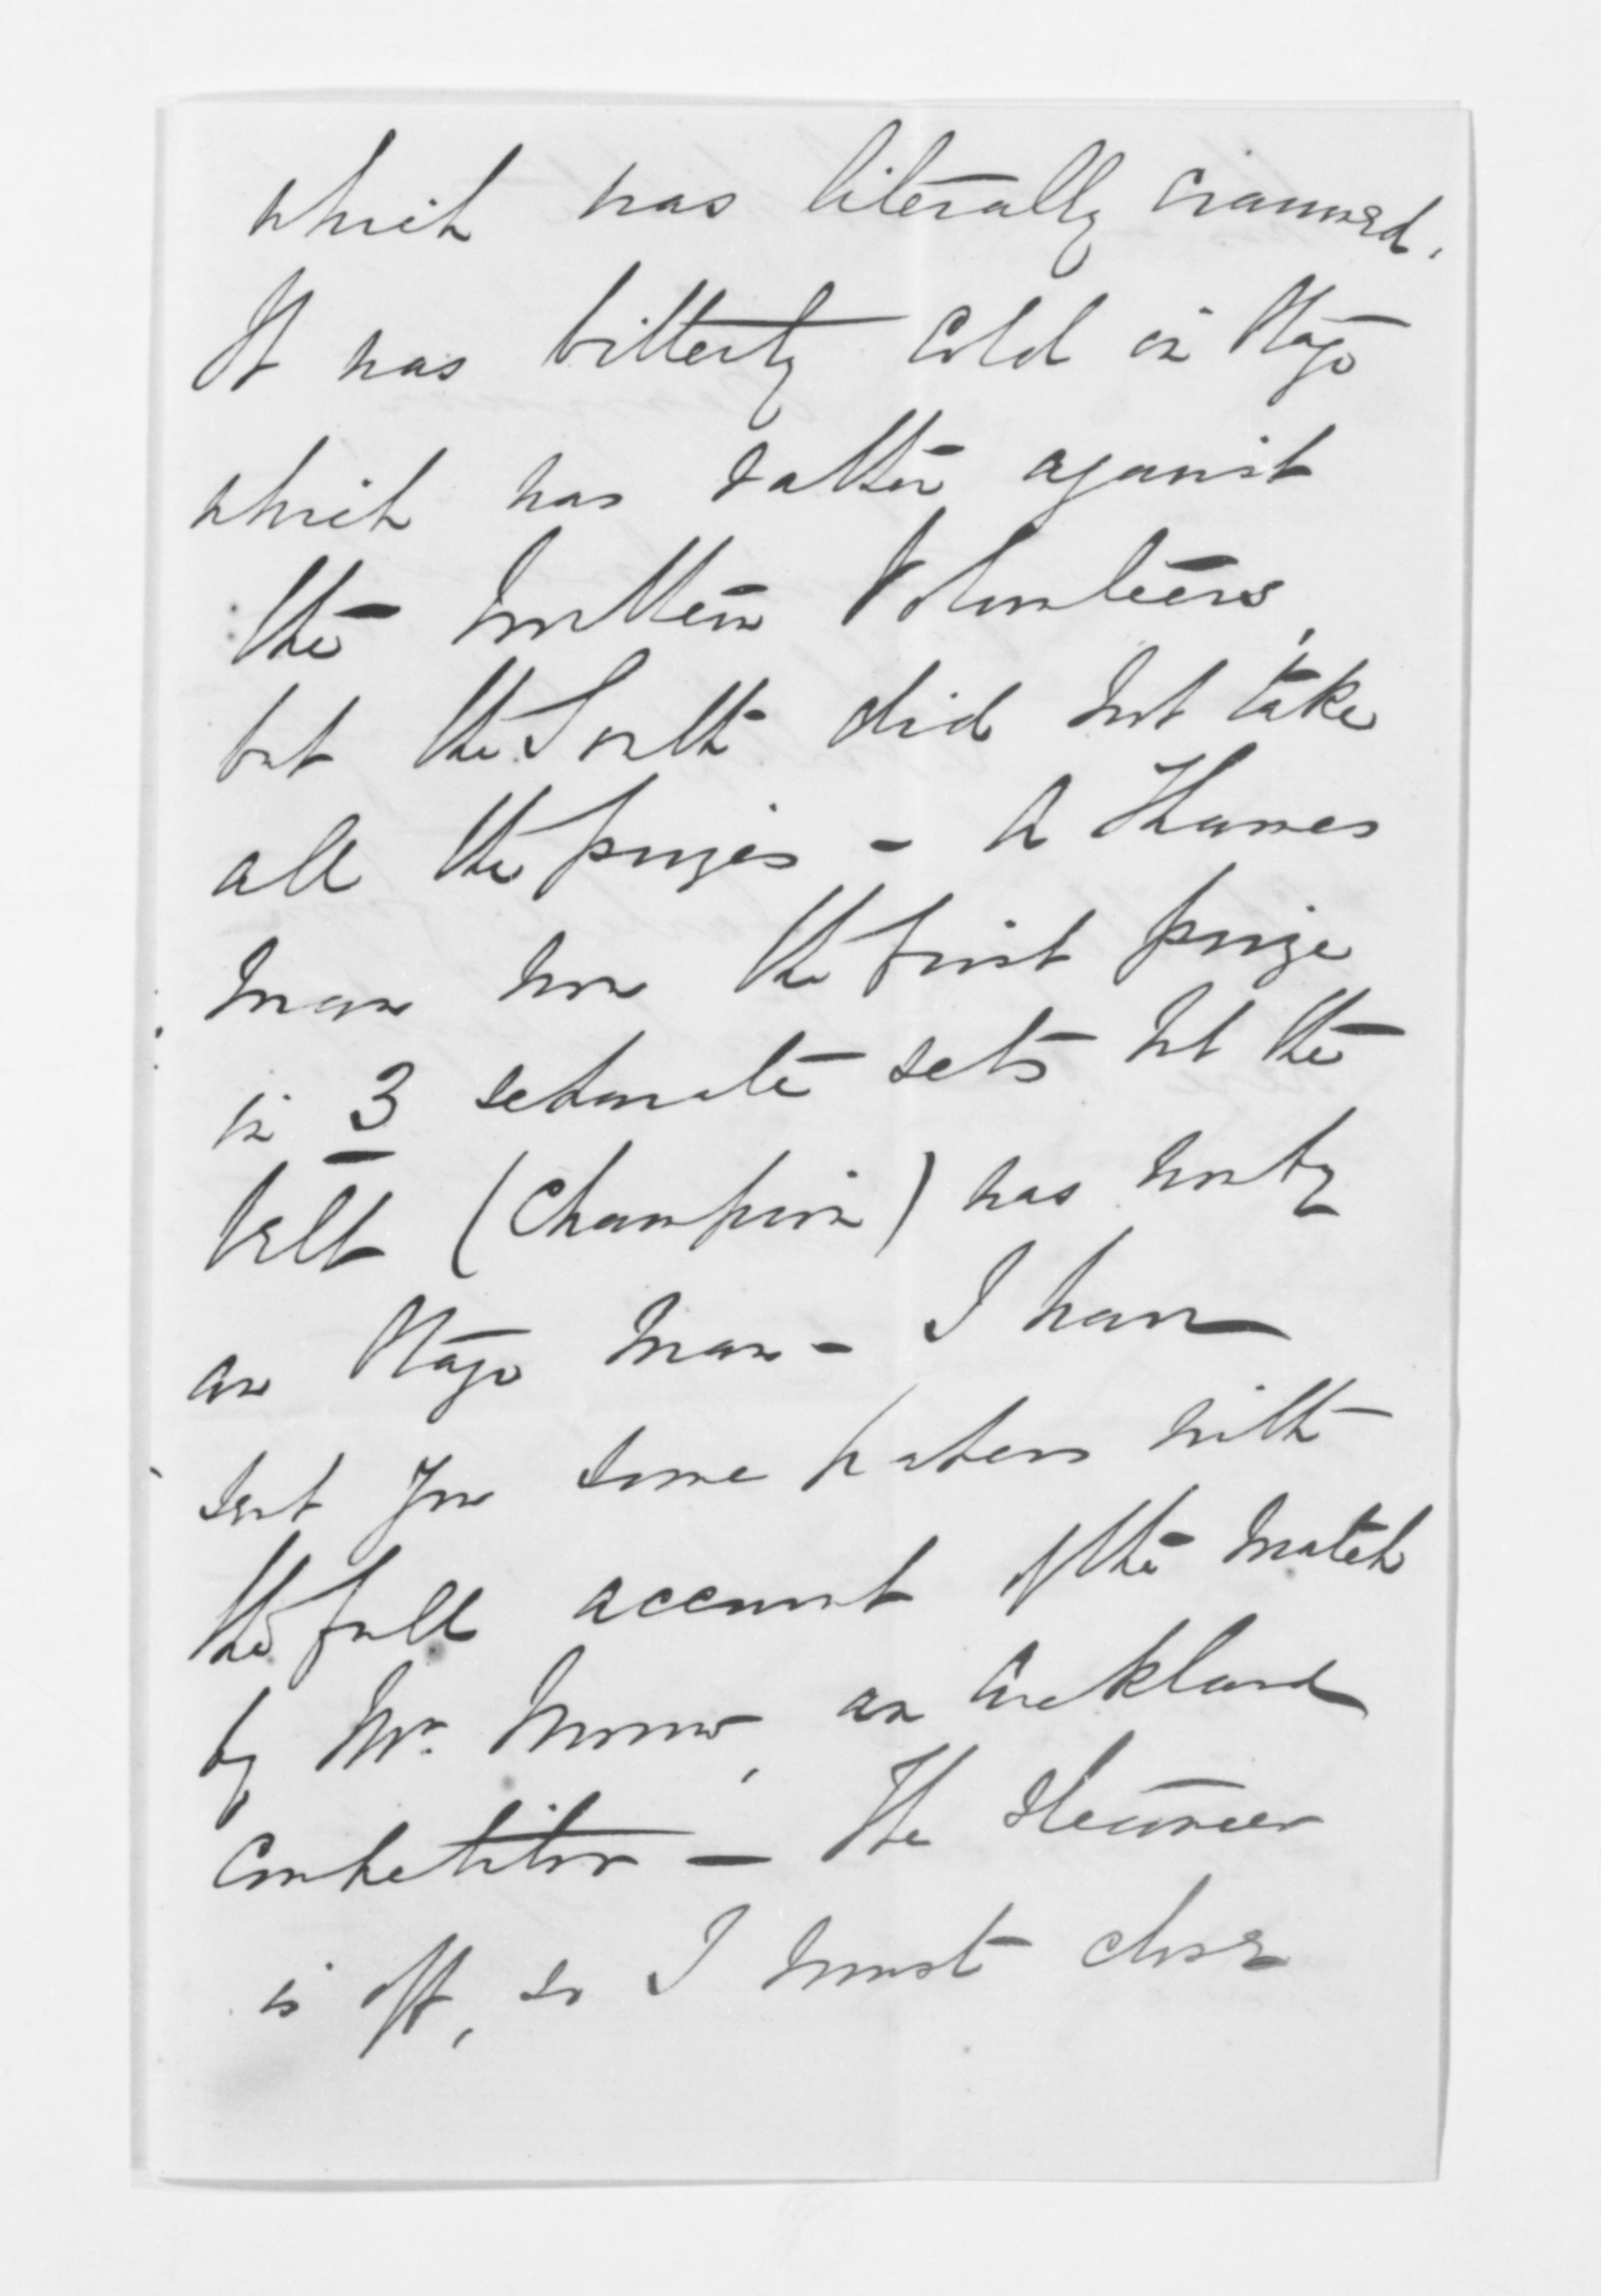 which was literally crammed.
It was bitterly cold in Otago
which was rather against
the Northern Volunteers,
but the South did not take
all the prizes – A Thames
man won the first prize
in 3 separate sets but the
belt (Champion) was won by
an Otago man – I have
sent you some papers with
the full account of the match
by Mr. Morrow, an Auckland
Competitor – The steamer
is off, so I must close